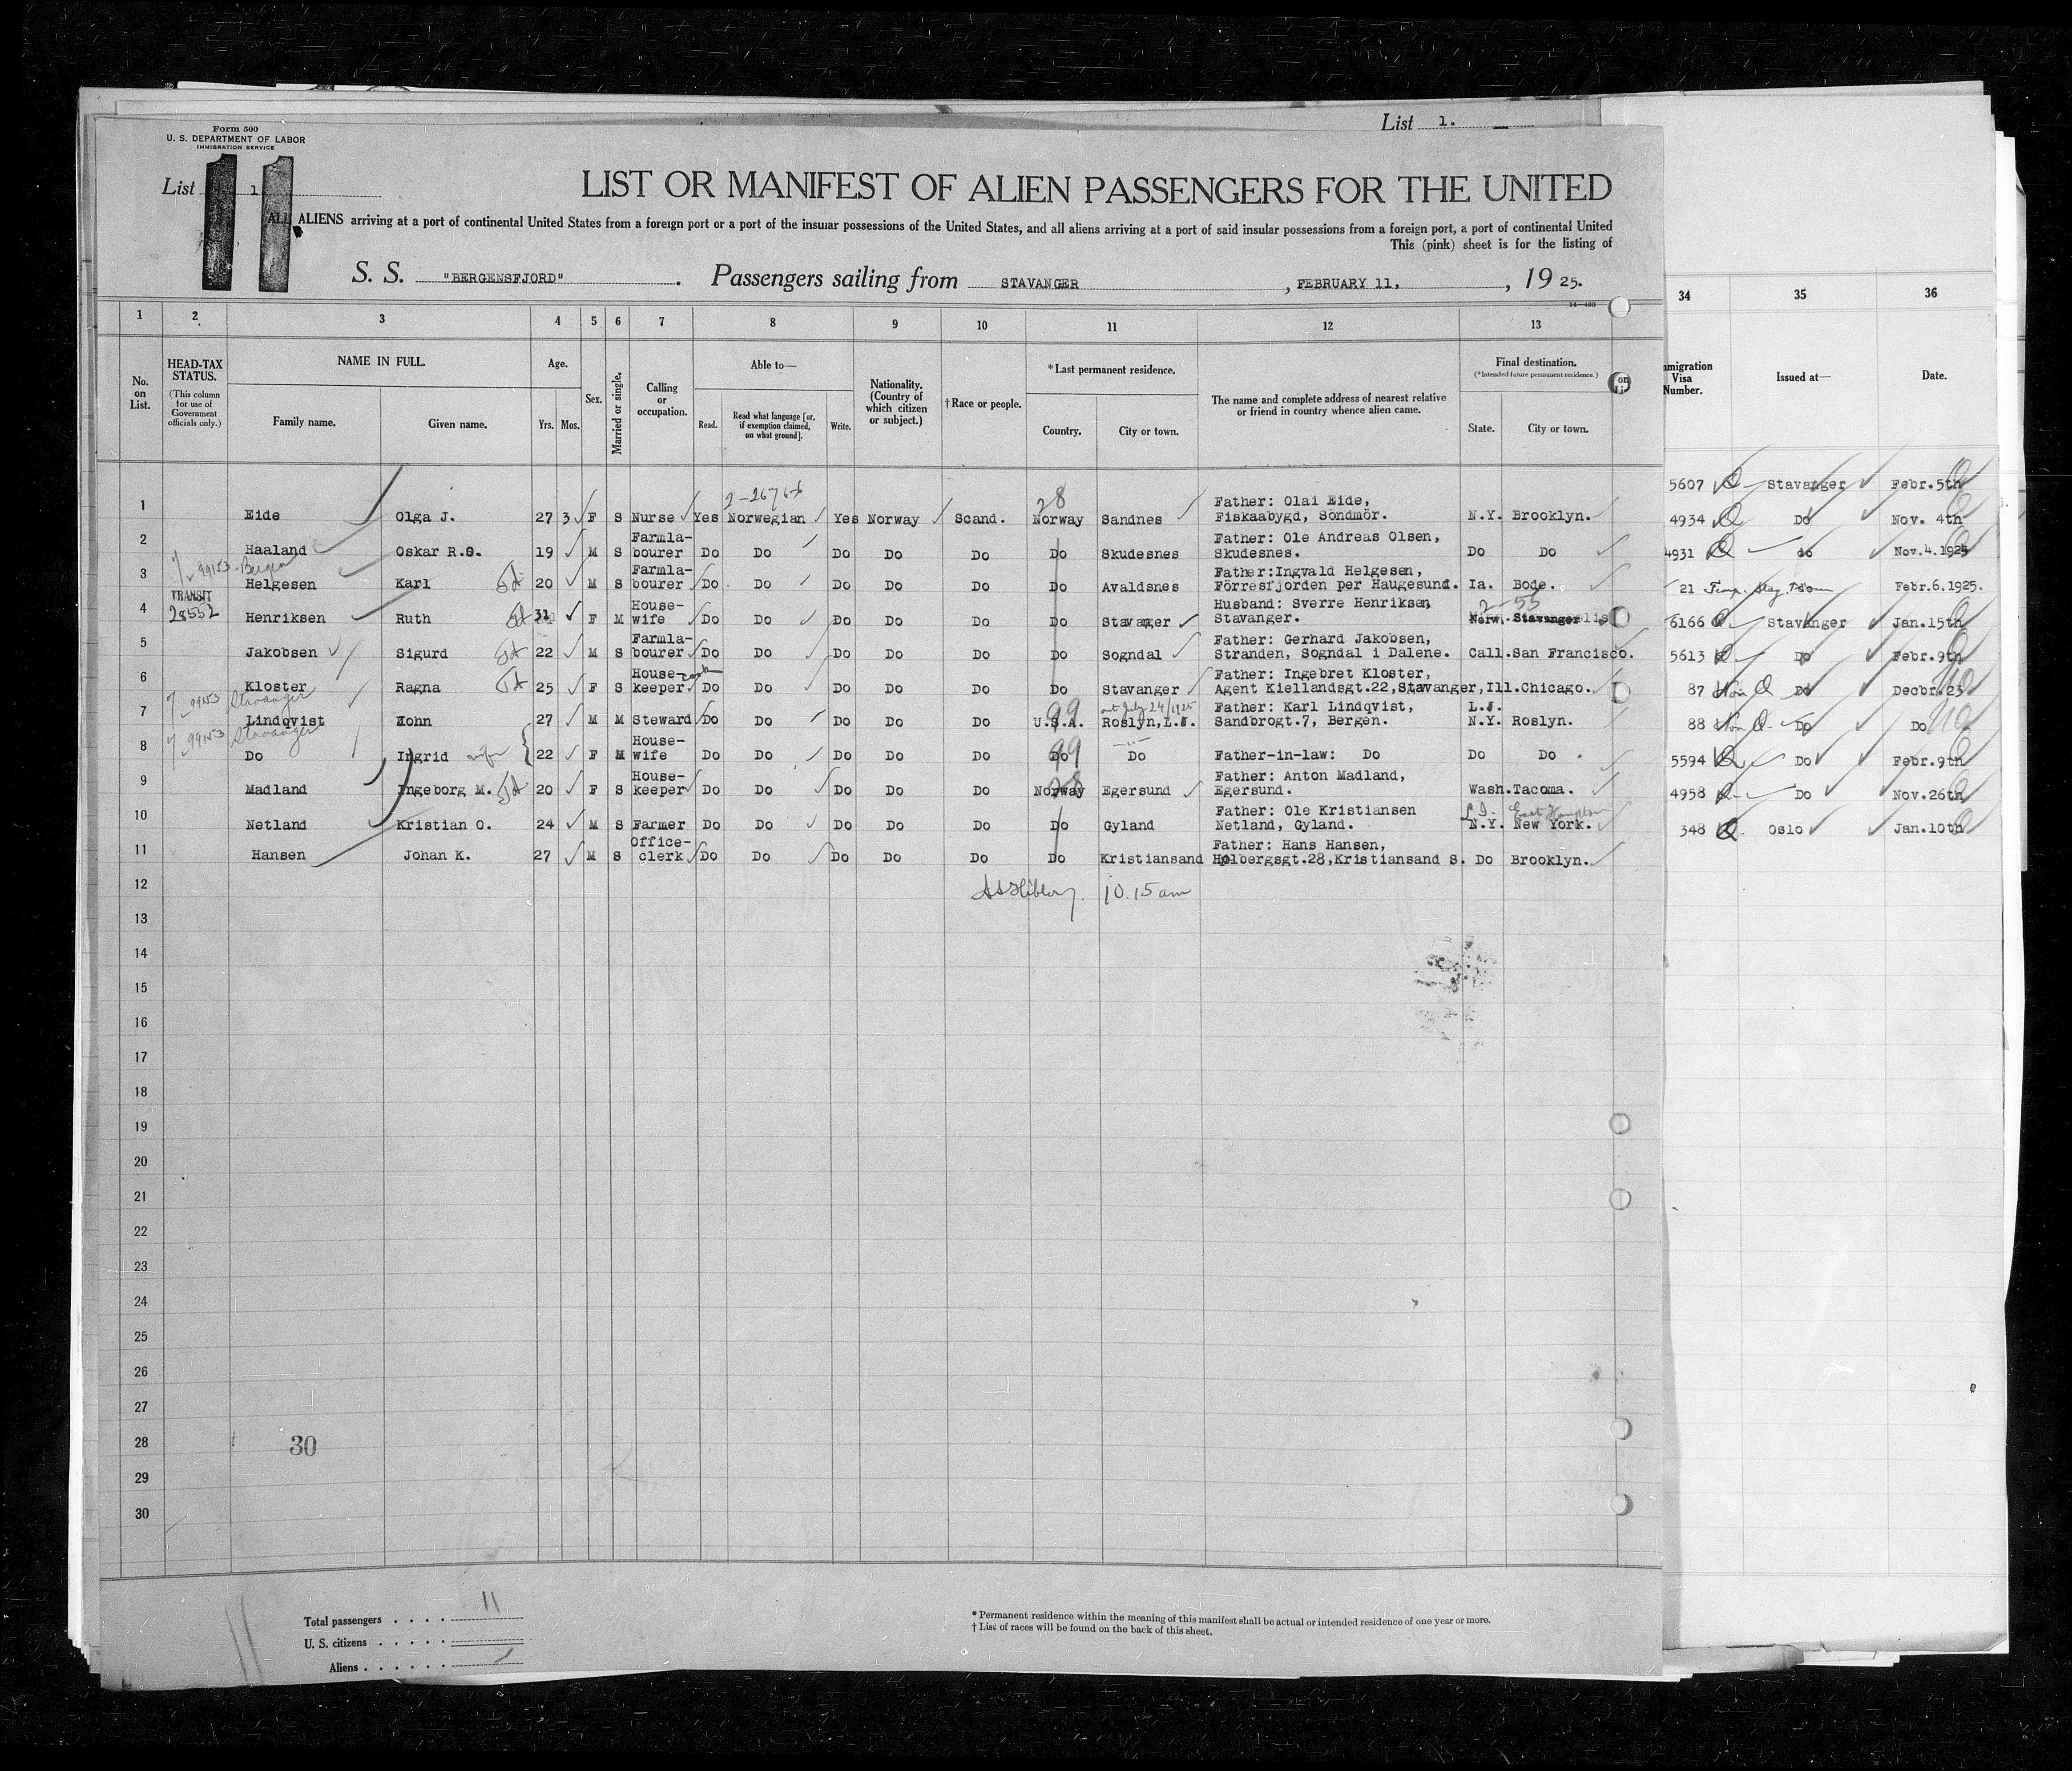 List 1.
Form 500
U. S. DEPARTMENT OF LABOR
IMMIGRATION SERVICE
List 1
11
LIST OR MANIFEST OF ALIEN PASSENGERS FOR THE UNITED
ALL ALIENS arriving at a port of continental United States from a foreign port or a port of the insular possessions of the United States, and all aliens arriving at a port of said insular possessions from a foreign port, a port of continental United
This (pink) sheet is for the listing of
S. S. "BERGENSFJORD" . Passengers sailing from STAVANGER , FEBRUARY 11, , 19 25.
1 2 3 4 5 6 7 8 9 10 11 12 13 34 35 36
No. on List.
HEAD-TAX STATUS.
(This column for use of Government officials only.)
NAME IN FULL.
Family name. Given name.
Age.
Yrs. Mos.
Sex.
Married or single.
Calling or occupation.
Able to—
Read. Read what language [or, if exemption claimed, on what ground]. Write.
Nationality. (Country of which citizen or subject.)
† Race or people.
* Last permanent residence.
Country. City or town.
The name and complete address of nearest relative or friend in country whence alien came.
Final destination.
(*Intended future permanent residence.)
State. City or town.
Immigration Visa Number.
Issued at—
Date.
2-26765 28
1 Eide Olga J. 27 3 F S Nurse Yes Norwegian Yes Norway Scand. Norway Sandnes Father: Olai Eide, Fiskaabygd, Söndmör. N.Y. Brooklyn.
5607 Q Stavanger Febr.5th
2 Haaland Oskar R.O. 19 M S Farmla-bourer Do Do Do Do Do Do Skudesnes Father: Ole Andreas Olsen, Skudesnes. Do Do
4934 Q Do Nov. 4th
99153 Bergen
3 Helgesen Karl 20 M S Farmla-bourer Do Do Do Do Do Do Avaldsnes Father:Ingvald Helgesen, Förresfjorden per Haugesund. Ia. Bode.
4931 Q do Nov.4.1925
TRANSIT
28532
4 Henriksen Ruth 31 F M House-wife Do Do Do Do Do Do Stavanger Husband: Sverre Henriksen, Stavanger. 2-55 Norw. Stavanger
21 Febr.6.1925.
5 Jakobsen Sigurd 22 M S Farmla-bourer Do Do Do Do Do Do Sogndal Father: Gerhard Jakobsen, Stranden, Sogndal i Dalene. Call.San Francisco.
6166 Q Stavanger Jan.15th
6 Kloster Ragna 25 F S House-keeper Do Do Do Do Do Do Stavanger Father: Ingebret Kloster, Agent Kiellandsgt.22,Stavanger,Ill.Chicago.
5613 Q Do Febr.9th
99153 Stavanger
7 Lindqvist John 27 M M Steward Do Do Do Do Do 99 U.S.A. out July 24/1925 Roslyn,L.I. Father: Karl Lindqvist, Sandbrogt.7, Bergen. L.I. N.Y. Roslyn.
87 Non Q Do Decbr.23
99153 Stavanger
8 Do Ingrid wife 22 F M House-wife Do Do Do Do Do 99 Do Do Father-in-law: Do Do Do
88 Non Q Do Do
9 Madland Ingeborg M. 20 F S House-keeper Do Do Do Do Do 28 Norway Egersund Father: Anton Madland, Egersund. Wash.Tacoma.
5594 Q Do Febr.9th
10 Netland Kristian O. 24 M S Farmer Do Do Do Do Do Do Gyland Father: Ole Kristiansen Netland, Gyland. L.I. East Hampton N.Y. New York.
4958 Do Nov.26th
11 Hansen Johan K. 27 M S Office-clerk Do Do Do Do Do Do Kristiansand Father: Hans Hansen, Holbergsgt.28,Kristiansand S. Do Brooklyn.
348 Q Oslo Jan.10th
12 10.15 am
13
14
15
16
17
18
19
20
21
22
23
24
25
26
27
28 30
29
30
Total passengers . . . . 11
U. S. citizens . . . . .
Aliens . . . . . .
* Permanent residence within the meaning of this manifest shall be actual or intended residence of one year or more.
† List of races will be found on the back of this sheet.